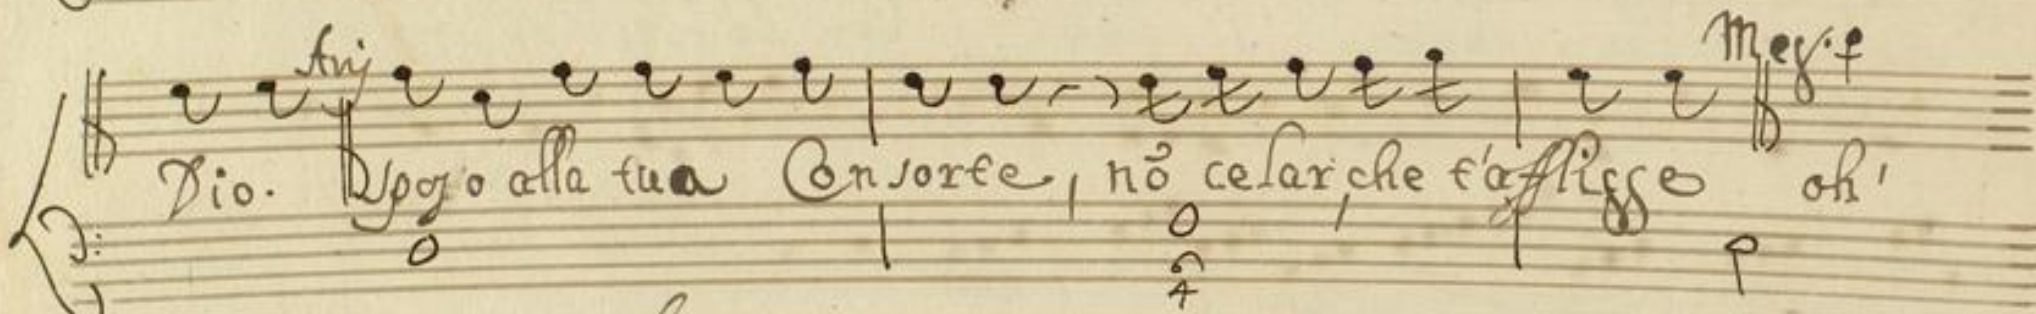 Arij Meg.
Dio. Sposo alla tua Consorte, nō celar, che t'afflisse oh'
6
4